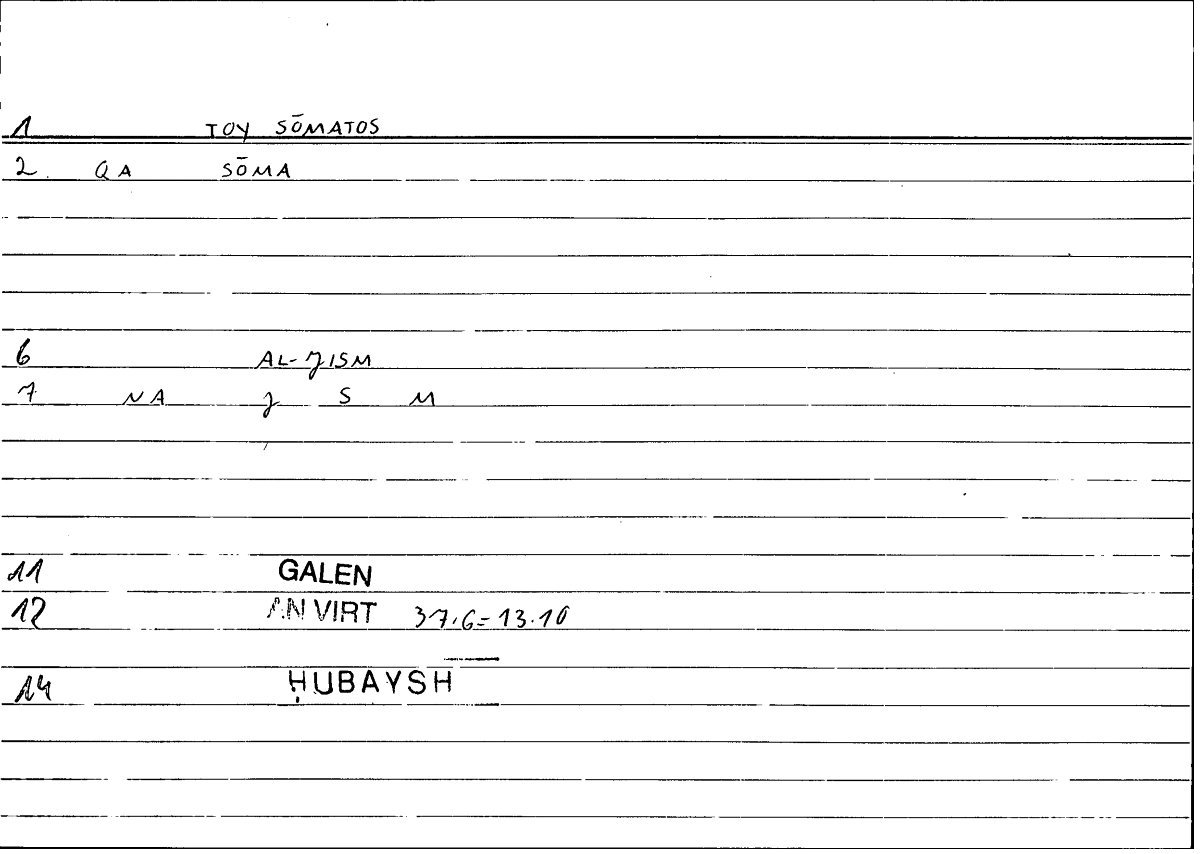 1 TOY SŌMATOS
2. QA SŌMA
6 AL-JISM
7 NA J S M
11 GALEN
12 AN VIRT 37.6=13.10
14 ḤUBAYSH